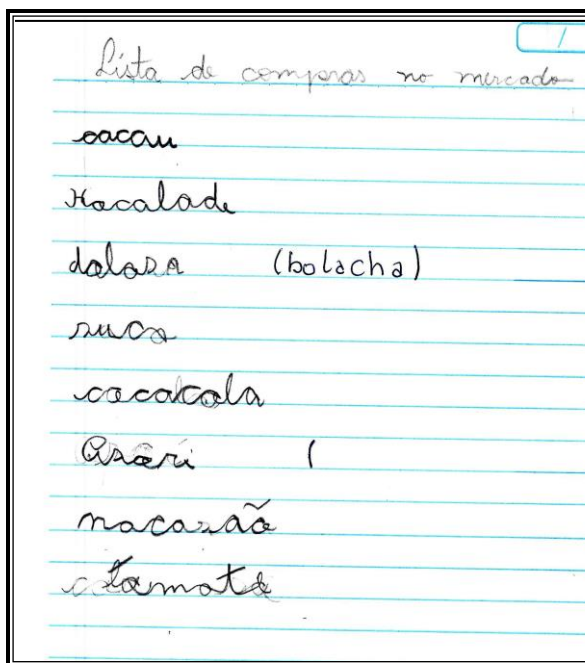 Lista de compras no mercado
cacau
Hacalade
dolosa (bolacha)
suco
cocacola
nacasão
tamate